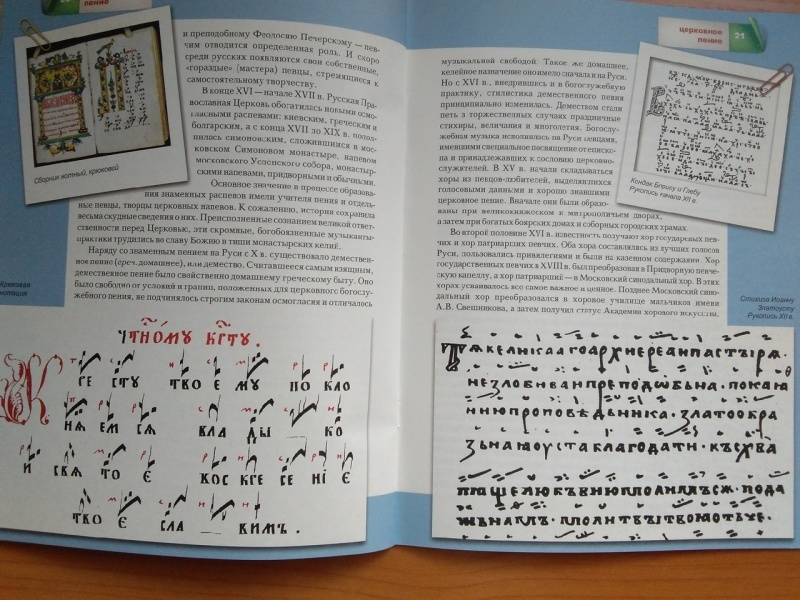 пение
и преподобному Феодосию Печерскому — пев-
чим отводится определенная роль. И скоро
среди русских появляются свои собственные,
«гораздые» (мастера) певцы, стремящиеся к
самостоятельному творчеству.
В конце XVI — начале XVII в. Русская Пра-
вославная Церковь обогатилась новыми осмо-
гласными распевами: киевским, греческим и
болгарским, а с конца XVII до XIX в. попол-
нилась симоновским, сложившимся в мос-
ковском Симоновом монастыре, напевом
московского Успенского собора, монастыр-
скими напевами, придворным и обычным.
Основное значение в процессе образова-
ния знаменных распевов имели учителя пения и отдель-
ные певцы, творцы церковных напевов. К сожалению, история сохранила
весьма скудные сведения о них. Преисполненные сознанием великой ответ-
ственности перед Церковью, эти скромные, богобоязненные музыканты-
практики трудились во славу Божию в тиши монастырских келий.
Наряду со знаменным пением на Руси с X в. существовало демествен-
ное пение (греч. домашнее), или демество. Считавшееся самым изящным,
демественное пение было свойственно домашнему греческому быту. Оно
было свободно от условий и границ, положенных для церковного богослу-
жебного пения, не подчинялось строгим законам осмогласия и отличалось
Сборник нотный, крюковой
Крюковая
нотация
ЧТНОМУ КРТУ.
КРЕСТУ ТВОЕМУ ПОКЛО
НЯЕМСЯ ВЛАДЫКО
И СВЯТОЕ ВОСКРЕСЕНІЕ
ТВОЕ СЛАВИМЪ.
церковное
пение
21
музыкальной свободой. Такое же домашнее,
келейное назначение оно имело сначала и на Руси.
Но с XVI в., внедрившись и в богослужебную
практику, стилистика демественного пения
принципиально изменилась. Демеством стали
петь в торжественных случаях праздничные
стихиры, величания и многолетия. Богослу-
жебная музыка исполнялась на Руси певцами,
имевшими специальное посвящение от еписко-
па и принадлежащих к сословию церковно-
служителей. В XV в. начали складываться
хоры из певцов-любителей, выделяющихся
голосовыми данными и хорошо знавшими
церковное пение. Вначале они были образо-
ваны при великокняжеском и митрополичьем дворах,
а затем при богатых боярских домах и соборных городских храмах.
Во второй половине XVI в. известность получают хор государевых пев-
чих и хор патриарших певчих. Оба хора составлялись из лучших голосов
Руси, пользовались привилегиями и были на казенном содержании. Хор
государственных певчих в XVIII в. был преобразован в Придворную певче-
скую капеллу, а хор патриарший — в Московский синодальный хор. В этих
хорах усваивалось все самое важное и ценное. Позднее Московский сино-
дальный хор преобразовался в хоровое училище мальчиков имени
А.В. Свешникова, а затем получил статус Академии хорового искусства.
Кондак Борису и Глебу
Рукопись начала XII в.
Стихира Иоанну
Златоусту
Рукопись XII в.